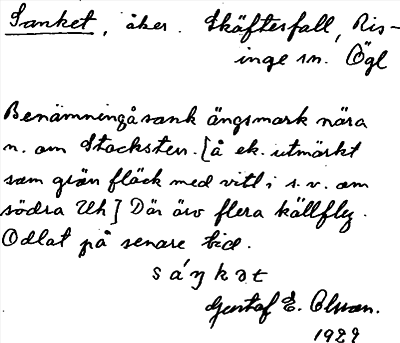 Sanket, åker. Skäftesfall, Ris-
inge sn. Ögl
Benämning å sank ängsmark nära
n. om Stocksten. [å ek. utmärkt
som grön fläck med vitt i s. v. om
södra Uh] Där äro flera källfly.
Odlat på senare tid.
sáŋkət
Gustaf E. Olsson.
1929